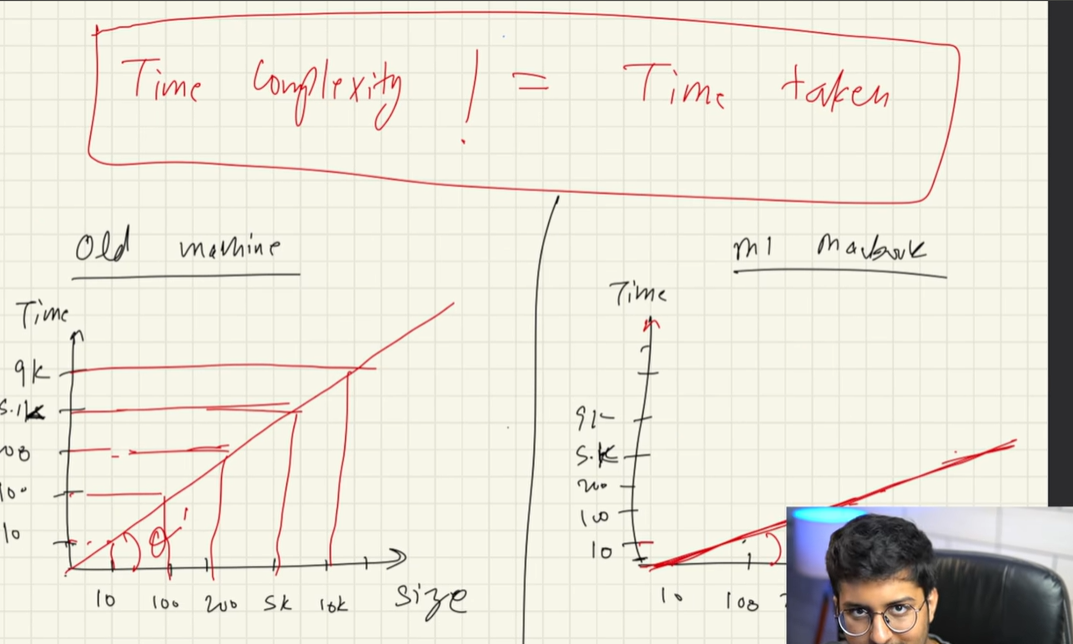 Time Complexity != Time taken
Old machine
Time
9k
5.1k
00
100
10
θ'
10 100 200 5k 10k size
M1 Macbook
Time
9k
5.k
200
100
10
10 100